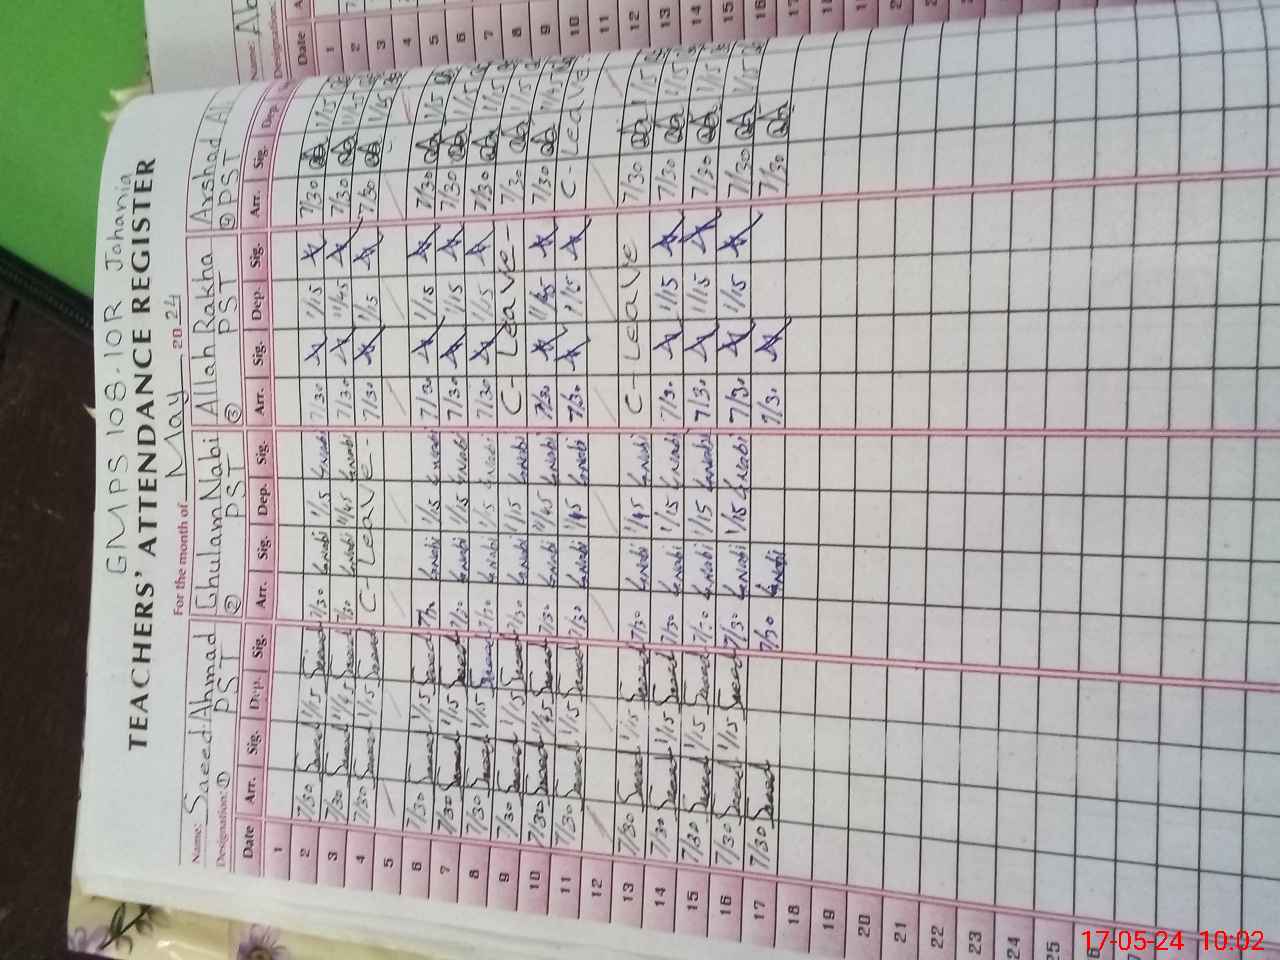 GMPS 108.10R Jahania
TEACHERS' ATTENDANCE REGISTER
For the month of May 2024
Name: Saeed Ahmad Ghulam Nabi Allah Rakha Arshad
Designation: ① PST ② PST ③ PST ④ PST
Date Arr. Sig. Dep. Sig. Arr. Sig. Dep. Sig. Arr. Sig. Dep. Sig. Arr. Sig. Dep.
1
2 7/30 Saeed 1/15 Saeed 7/30 G.Nabi 1/15 G.Nabi 7/30 1/15 7/30 1/15
3 7/30 Saeed 11/45 Saeed 7/30 G.Nabi 11/45 G.Nabi 7/30 11/45 7/30 11/45
4 7/30 Saeed 1/15 Saeed C-Leave- 7/30 1/15 7/30 1/15
5
6 7/30 Saeed 1/15 Saeed 7/30 G.Nabi 1/15 G.Nabi 7/30 1/15 7/30 1/15
7 7/30 Saeed 1/15 Saeed 7/30 G.Nabi 1/15 G.Nabi 7/30 1/15 7/30 1/15
8 7/30 Saeed 1/15 Saeed 7/30 G.Nabi 1/15 G.Nabi 7/30 1/15 7/30 1/15
9 7/30 Saeed 1/15 Saeed 7/30 G.Nabi 1/15 G.Nabi C-Leave- 7/30 1/15
10 7/30 Saeed 11/45 Saeed 7/30 G.Nabi 11/45 G.Nabi 7/30 11/45 7/30 11/45
11 7/30 Saeed 1/15 Saeed 7/30 G.Nabi 1/15 G.Nabi 7/30 1/15 C-Leave
12
13 7/30 Saeed 1/15 Saeed 7/30 G.Nabi 1/15 G.Nabi C-Leave 7/30 1/15
14 7/30 Saeed 1/15 Saeed 7/30 G.Nabi 1/15 G.Nabi 7/30 1/15 7/30 1/15
15 7/30 Saeed 1/15 Saeed 7/30 G.Nabi 1/15 G.Nabi 7/30 1/15 7/30 1/15
16 7/30 Saeed 1/15 Saeed 7/30 G.Nabi 1/15 G.Nabi 7/30 1/15 7/30 1/15
17 7/30 Saeed 7/30 G.Nabi 7/30 7/30
18
19
20
21
22
23
24
25
Name:
Designation:
Date
1
2
3
4
5
6
7
8
9
10
11
12
13
14
15
16
17
17-05-24 10:02